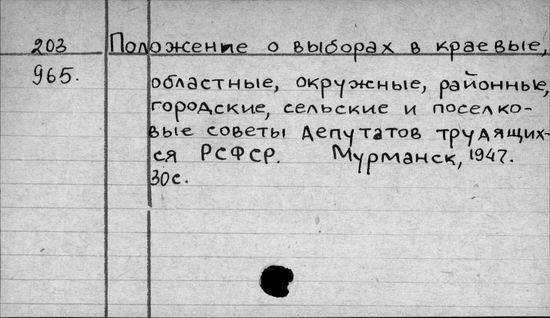 203 Положение о выборах в краевые,
965. областные, окружные, районные,
городские, сельские и поселко-
вые советы депутатов трудящих-
ся РСФСР. Мурманск, 1947.
30с.